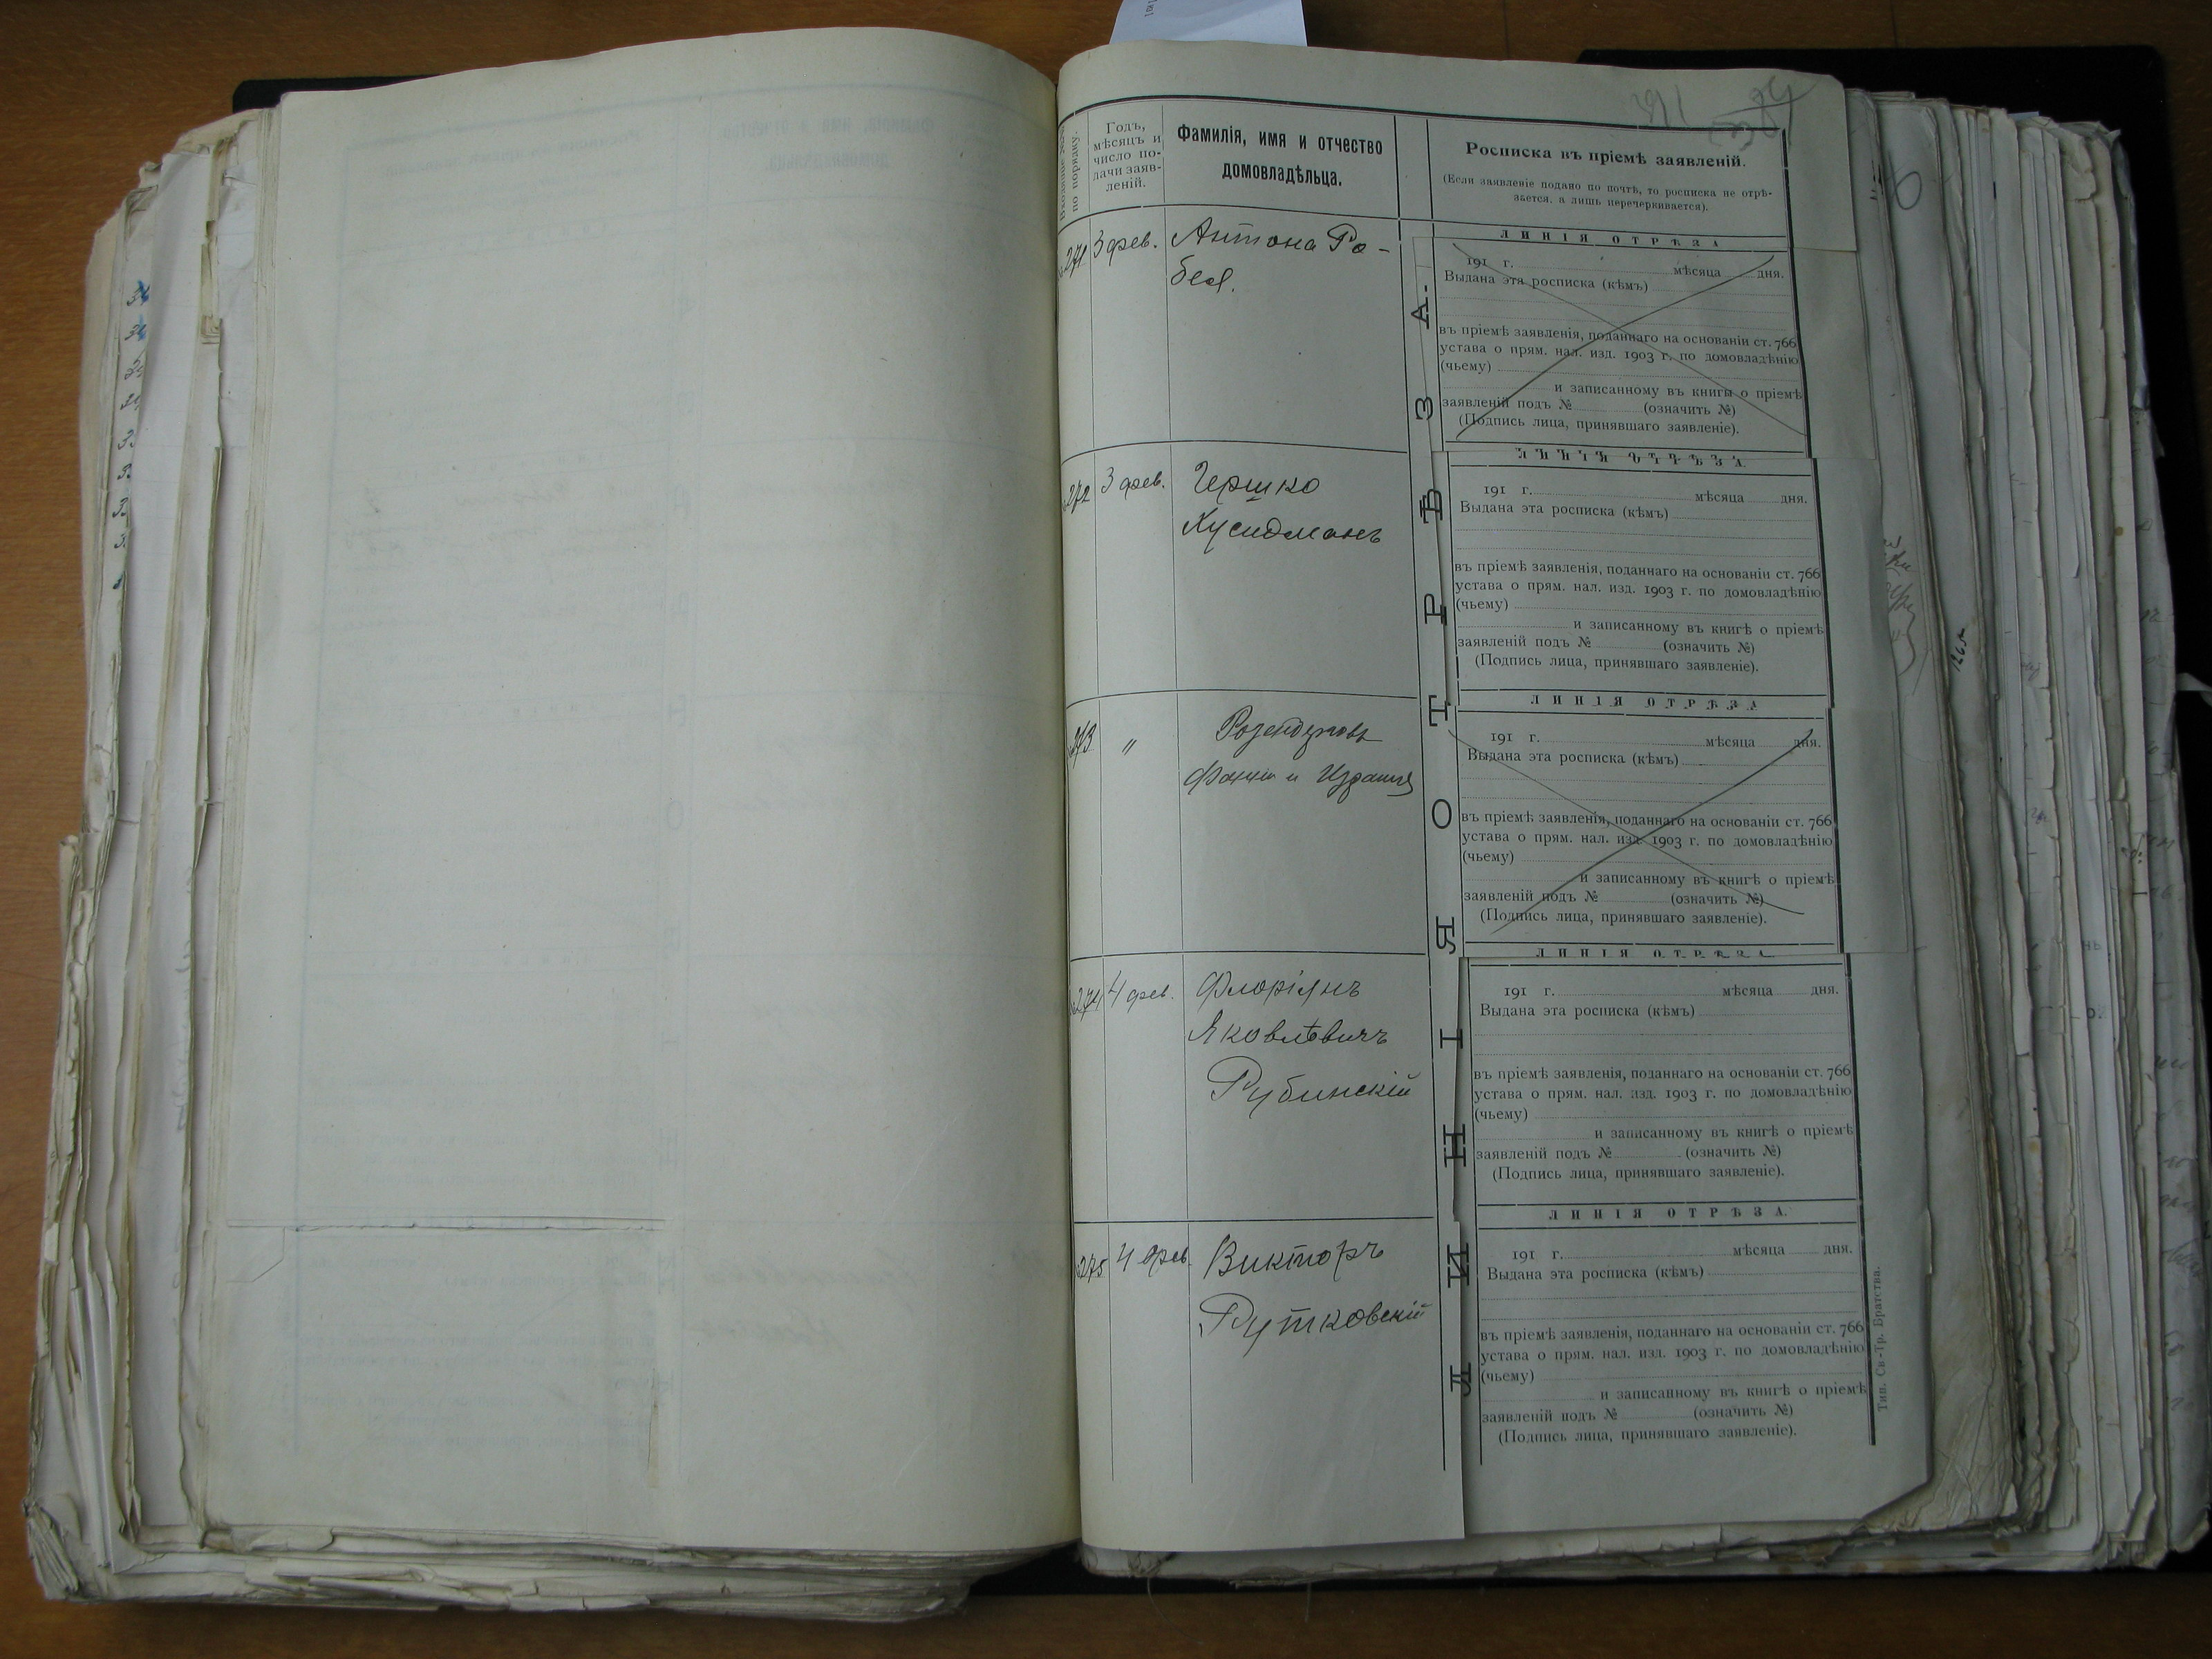 Входящіе №№
по порядку.
Годъ,
мѣсяцъ и
число по-
дачи заяв-
леній.
Фамилія, имя и отчество
домовладѣльца.
Росписка въ пріемѣ заявленій.
(Если заявленіе подано по почтѣ, то росписка не отрѣ-
зается, а лишь перечеркивается).
271 3 фев. Антона Ро-
бея.
ЛИНІЯ ОТРѢЗА
191 г. мѣсяца дня.
Выдана эта росписка (кѣмъ)
въ пріемѣ заявленія, поданнаго на основаніи ст. 766
устава о прям. нал. изд. 1903 г. по домовладѣнію
(чьему)
и записанному въ книгѣ о пріемѣ
заявленій подъ № (означить №)
(Подпись лица, принявшаго заявленіе).
272 3 фев. Гершко
Хусидманъ
ЛИНІЯ ОТРѢЗА
191 г. мѣсяца дня.
Выдана эта росписка (кѣмъ)
въ пріемѣ заявленія, поданнаго на основаніи ст. 766
устава о прям. нал. изд. 1903 г. по домовладѣнію
(чьему)
и записанному въ книгѣ о пріемѣ
заявленій подъ № (означить №)
(Подпись лица, принявшаго заявленіе).
273 "
и
ЛИНІЯ ОТРѢЗА
191 г. мѣсяца дня.
Выдана эта росписка (кѣмъ)
въ пріемѣ заявленія, поданнаго на основаніи ст. 766
устава о прям. нал. изд. 1903 г. по домовладѣнію
(чьему)
и записанному въ книгѣ о пріемѣ
заявленій подъ № (означить №)
(Подпись лица, принявшаго заявленіе).
274 4 фев. Флоріянъ
Яковлѣвичъ
Рубинскій
ЛИНІЯ ОТРѢЗА
191 г. мѣсяца дня.
Выдана эта росписка (кѣмъ)
въ пріемѣ заявленія, поданнаго на основаніи ст. 766
устава о прям. нал. изд. 1903 г. по домовладѣнію
(чьему)
и записанному въ книгѣ о пріемѣ
заявленій подъ № (означить №)
(Подпись лица, принявшаго заявленіе).
275 4 фев. Викторъ
Рутковскій
ЛИНІЯ ОТРѢЗА.
191 г. мѣсяца дня.
Выдана эта росписка (кѣмъ)
въ пріемѣ заявленія, поданнаго на основаніи ст. 766
устава о прям. нал. изд. 1903 г. по домовладѣнію
(чьему)
и записанному въ книгѣ о пріемѣ
заявленій подъ № (означить №)
(Подпись лица, принявшаго заявленіе).
ЛИНІЯ ОТРѢЗА.
Тип. Св.-Тр. Братства.
1265